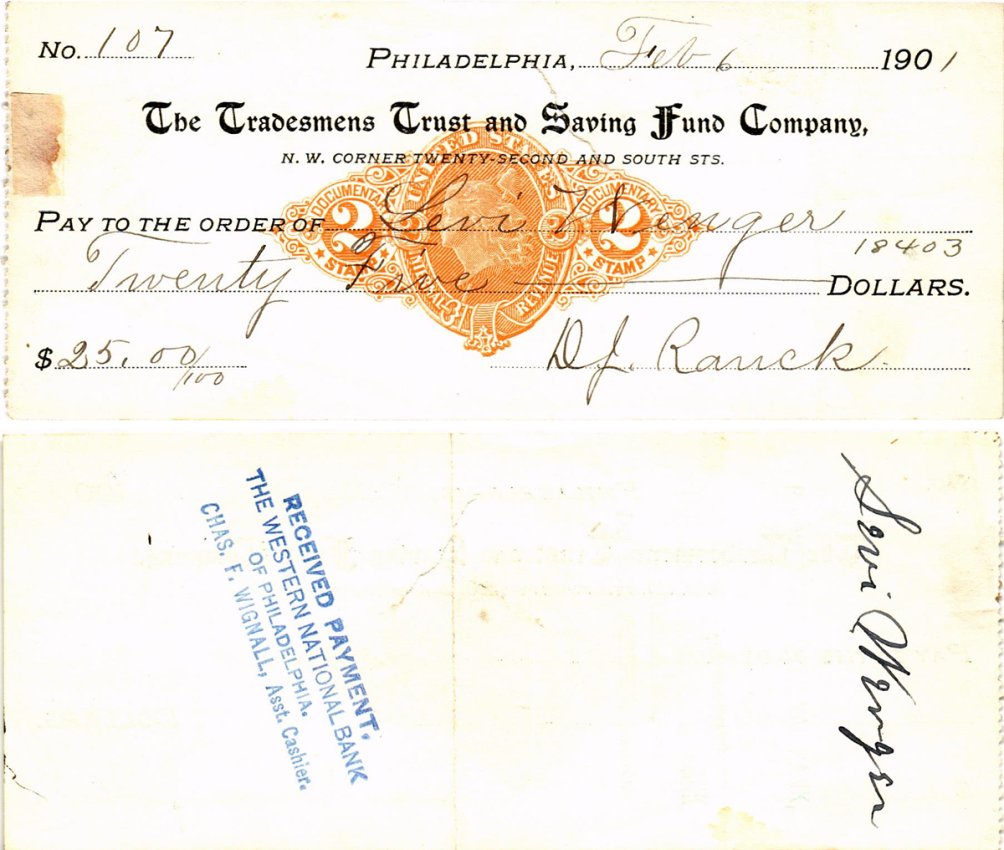 No. 107
PHILADELPHIA, Feb 6 1901
The Tradesmens Trust and Saving Fund Company,
N. W. CORNER TWENTY-SECOND AND SOUTH STS.
UNITED STATES
DOCUMENTARY DOCUMENTARY
PAY TO THE ORDER OF Levi Wenger
2 2
18403
STAMP STAMP
INTERNAL REVENUE
Twenty Five DOLLARS.
$ 25.00/100
D J. Ranck
RECEIVED PAYMENT.
THE WESTERN NATIONAL BANK
OF PHILADELPHIA.
CHAS. F. WIGNALL, Asst. Cashier.
Levi Wenger